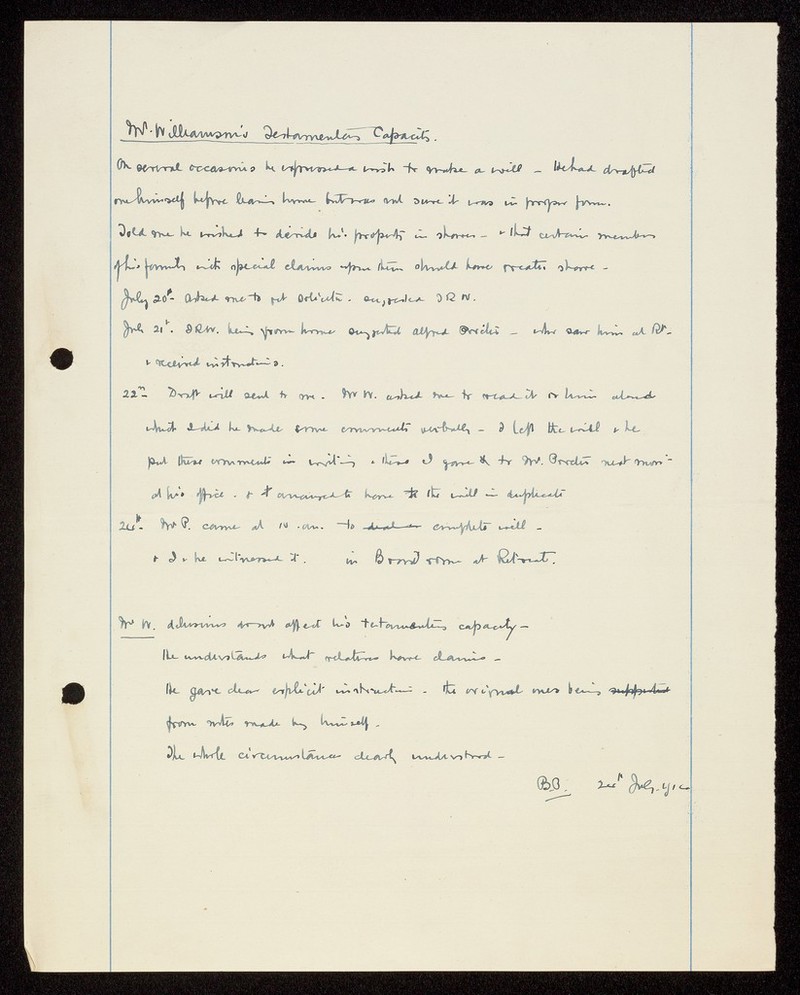 Mr. Williamson's Testamentary Capacity.
On several occasions he expressed a wish to make a will - He had drafted
one himself before leaving home but was not sure it was in proper form.
Told me he wished to divide his property in shares - & that certain members
of his family with special claims upon them should have greater share -
July 20th asked me to get solicitor. suggested J R W.
July 21st. J.R.W. being from home suggested Alfred Procter - who saw him at Rt.
& received instructions.
22nd Draft will sent to me. Mr W. asked me to read it to him aloud
which I did he made some comments verbally - I left the will & he
put these comments in writing & these I gave to Mr. Procter next morng
at his office. & arranged to have the will in duplicate
24th. Mr P. came at 10 .am. to complete will -
& I & he witnessed it. in Board room at Retreat.
Mr W. delusions do not affect his testamentary capacity -
He understands what relatives have claims -
He gave clear explicit instructions - the original ones being
from notes made by himself -
The whole circumstances clearly understood -
B.P. 24th July